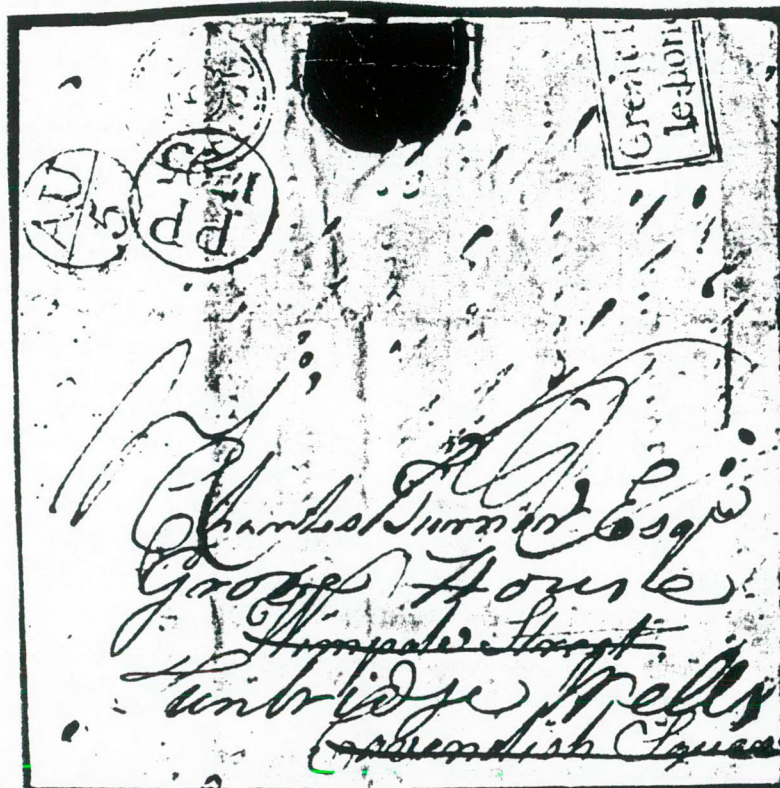 Great
le bone
AU
5
PP
Charles Turner Esqr
Grove House
Wimpole Street
Tunbridge Wells
Cavendish Square